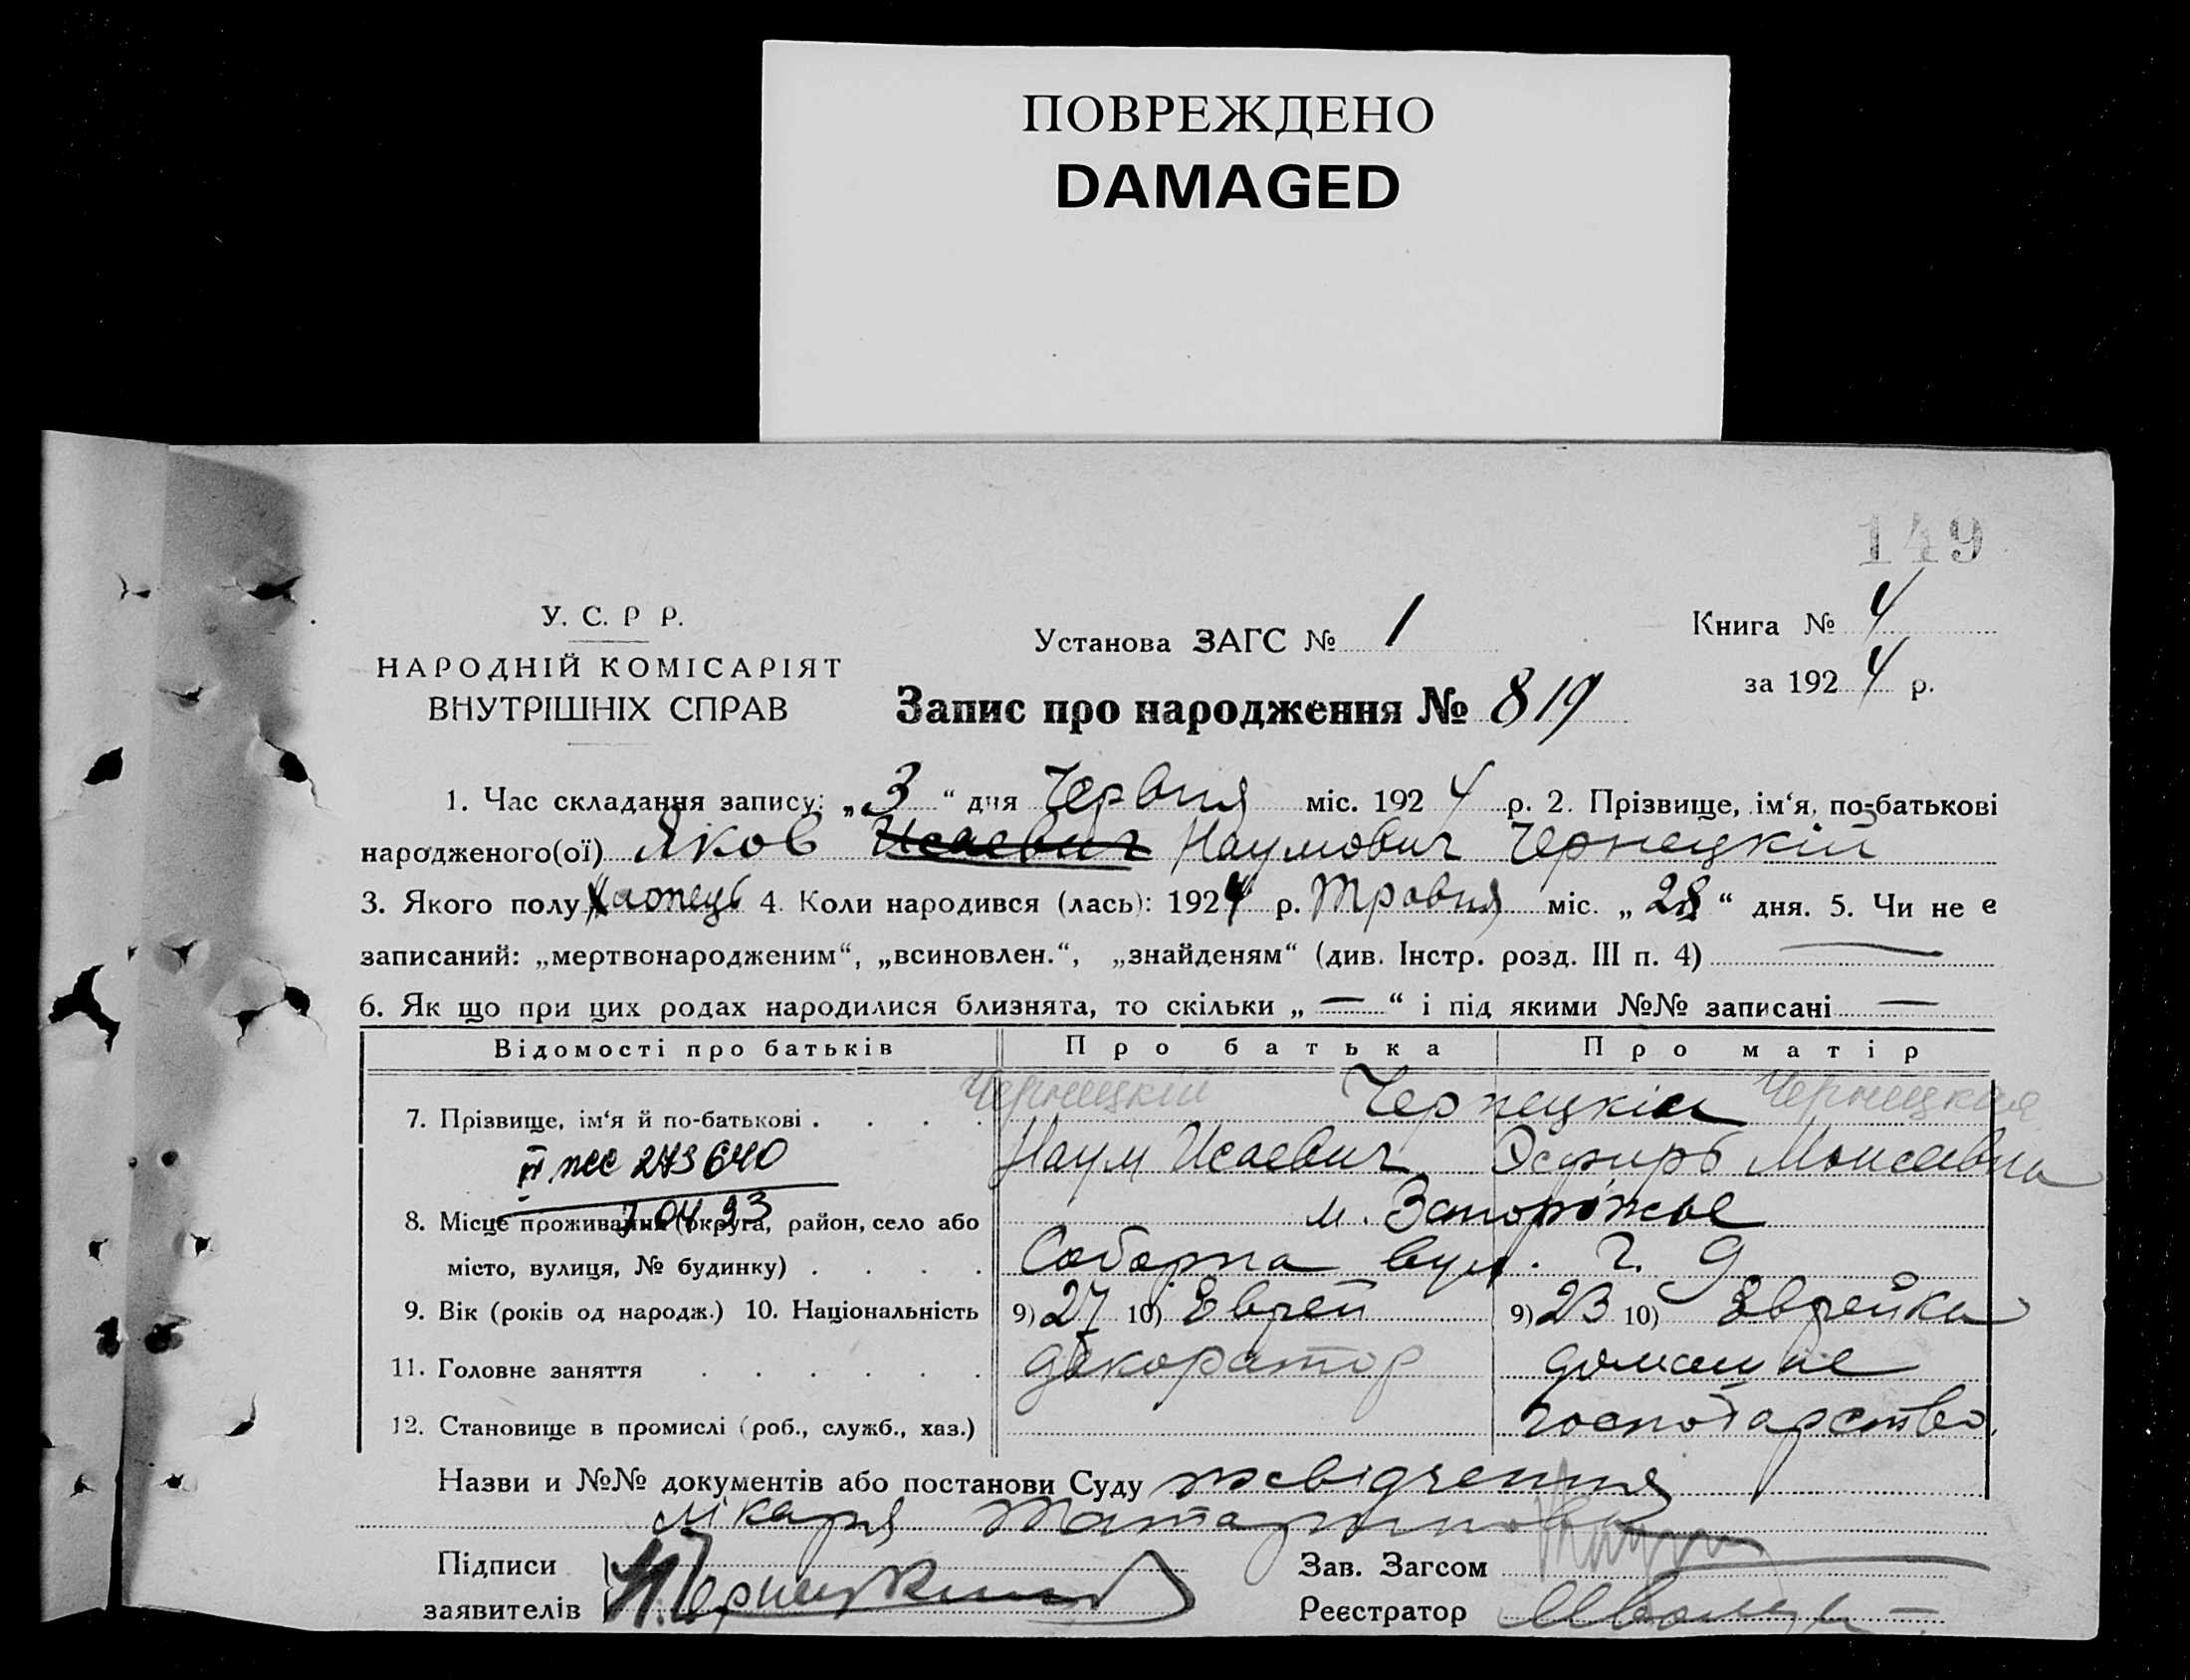 ПОВРЕЖДЕНО
DAMAGED
149
У. С. Р Р.
НАРОДНІЙ КОМІСАРІЯТ
ВНУТРІШНІХ СПРАВ
Установа ЗАГС № 1
Книга № 4
за 1924 р.
Запис про народження № 819
1. Час складання запису: „3“ дня Червня міс. 1924 р. 2. Прізвище, ім‘я, по-батькові
народженого(ої) Яков Исаевич Наумович Чернецкій
3. Якого полу Хлопець 4. Коли народився (лась): 1924 р. Травня міс. „28“ дня. 5. Чи не є
записаний: „мертвонародженим“, „всиновлен.“, „знайденям“ (див. Інстр. розд. III п. 4) —
6. Як що при цих родах народилися близнята, то скільки „—“ і під якими №№ записані —
Відомості про батьків Про батька Про матір
Чернецкій Чернецкіи Чернецкая
7. Прізвище, ім‘я й по-батькові . . . .
Наум Исаевич Эсфирь Моисеевна
273640
8. Місце проживання (округа, район, село або м. Запорожье
місто, вулиця, № будинку) . . . . Соборна вул. ч. 9
9. Вік (років од народж.) 10. Національність 9) 27 10) Еврей 9) 23 10) Еврейка
11. Головне заняття . . . . . . декоратор домашне
12. Становище в промислі (роб., служб., хаз.) господарство
Назви и №№ документів або постанови Суду посвідчення
лікаря
Підписи
заявителів Н Чернецкий
Зав. Загсом
Реєстратор